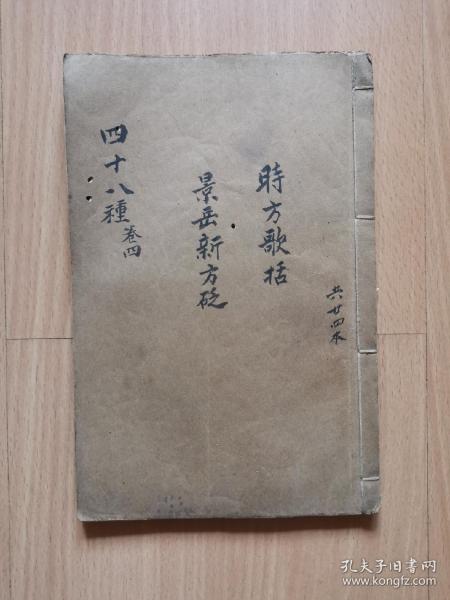 時方歌括
景岳新方砭
四十八種 卷四
共廿四本
孔夫子旧书网
www.kongfz.com